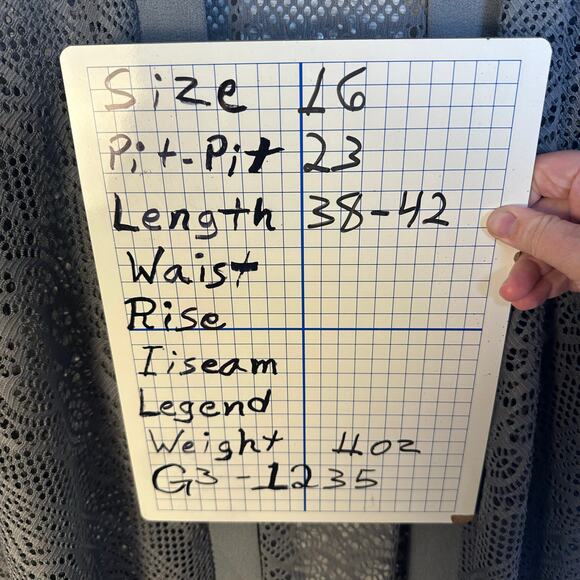 Size 16
Pit-Pit 23
Length 38-42
Waist
Rise
Iiseam
Legend
Weight 11oz
G3-1235